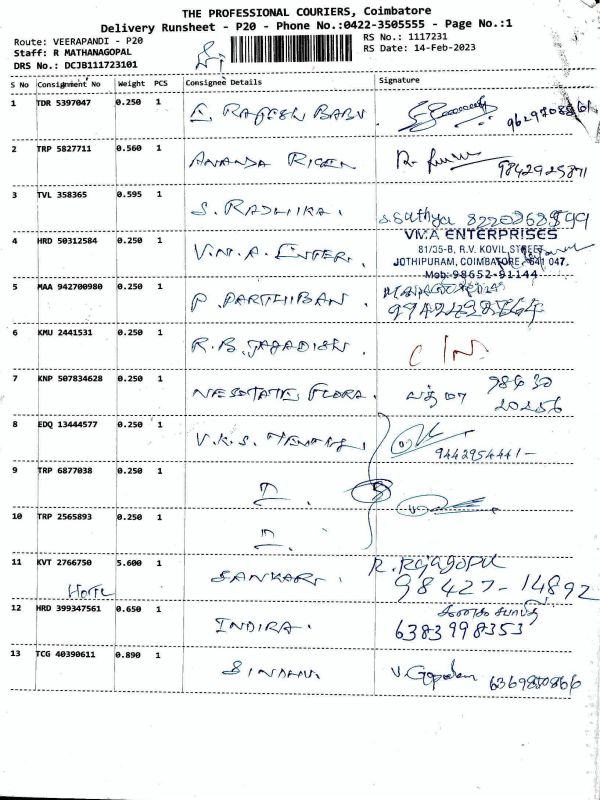 THE PROFESSIONAL COURIERS, Coimbatore
Delivery Runsheet - P20 - Phone No.:0422-3505555 - Page No.:1
Route: VEERAPANDI - P20
RS No.: 1117231
Staff: R MATHANAGOPAL
RS Date: 14-Feb-2023
DRS No.: DCJB111723101
S No Consignment No Weight PCS Consignee Details Signature
1 TDR 5397047 0.250 1 E. RAJESH BABU
2 TRP 5827711 0.560 1 ANANDA 9842925871
3 TVL 358365 0.595 1 S. RADHIKA. S. Sathya 8220268899
4 HRD 50312584 0.250 1 V.M.A. ENTER.
VMA ENTERPRISES
81/35-B, R.V. KOVIL STREET,
JOTHIPURAM, COIMBATORE - 641 047.
Mob: 98652-91144
5 MAA 942700980 0.250 1 P. PARTHIBAN.
6 KMU 2441531 0.250 1 R.B. JAGADISH.
7 KNP 507834628 0.250 1 FLORA. 98430
20256
8 EDQ 13444577 0.250 1 V.K.S. 9442954441-
9 TRP 6877038 0.250 1
10 TRP 2565893 0.250 1
11 KVT 2766750 5.600 1 SANKARI. R. Rajagopal
98427-14892
12 HRD 399347561 0.650 1 INDIRA.
6383998353
13 TCG 40390611 0.890 1 SINDHU. V. Gopalan